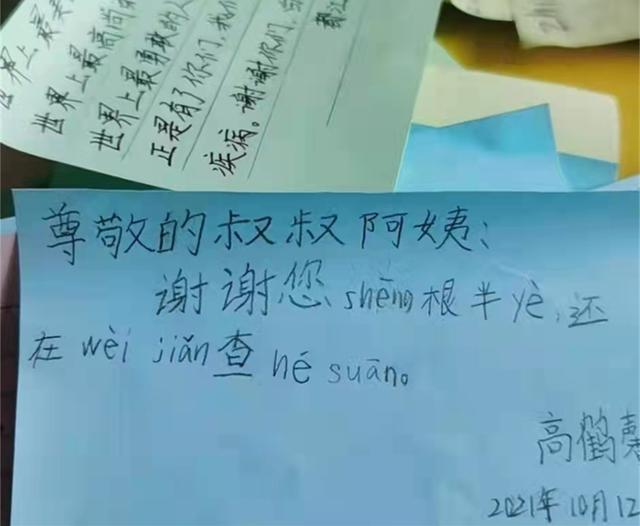 世界上最高尚的
世界上最勇敢的人
正是有了你们，我们
疾病。谢谢你们，
尊敬的叔叔阿姨：
谢谢您 shēng根半yè，还
在 wèi jiǎn查 hé suān。
高鹤
2021年10月12